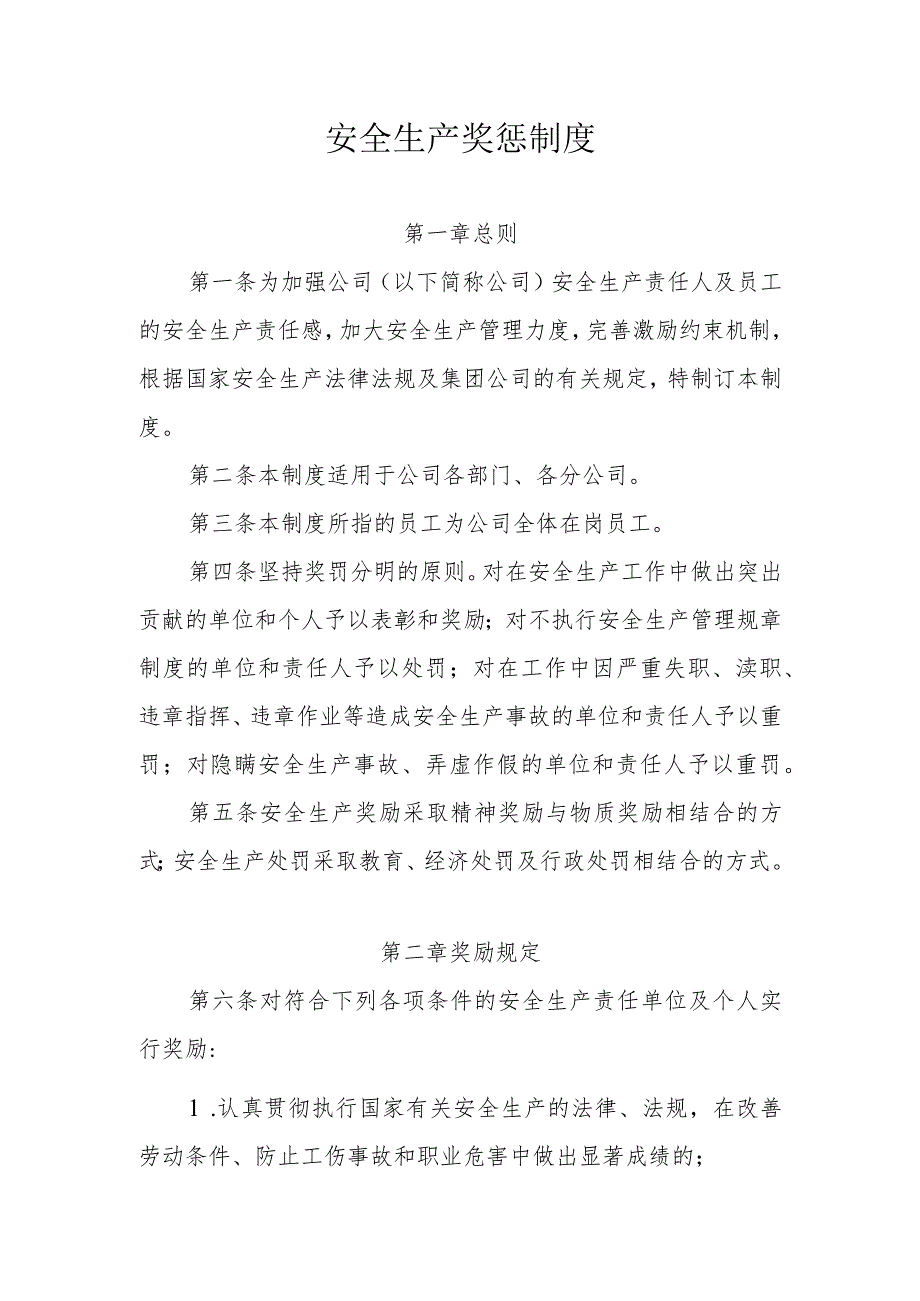 安全生产奖惩制度
第一章总则
第一条为加强公司（以下简称公司）安全生产责任人及员工
的安全生产责任感，加大安全生产管理力度，完善激励约束机制，
根据国家安全生产法律法规及集团公司的有关规定，特制订本制
度。
第二条本制度适用于公司各部门、各分公司。
第三条本制度所指的员工为公司全体在岗员工。
第四条坚持奖罚分明的原则。对在安全生产工作中做出突出
贡献的单位和个人予以表彰和奖励；对不执行安全生产管理规章
制度的单位和责任人予以处罚；对在工作中因严重失职、渎职、
违章指挥、违章作业等造成安全生产事故的单位和责任人予以重
罚；对隐瞒安全生产事故、弄虚作假的单位和责任人予以重罚。
第五条安全生产奖励采取精神奖励与物质奖励相结合的方
式；安全生产处罚采取教育、经济处罚及行政处罚相结合的方式。
第二章奖励规定
第六条对符合下列各项条件的安全生产责任单位及个人实
行奖励：
1 .认真贯彻执行国家有关安全生产的法律、法规，在改善
劳动条件、防止工伤事故和职业危害中做出显著成绩的；